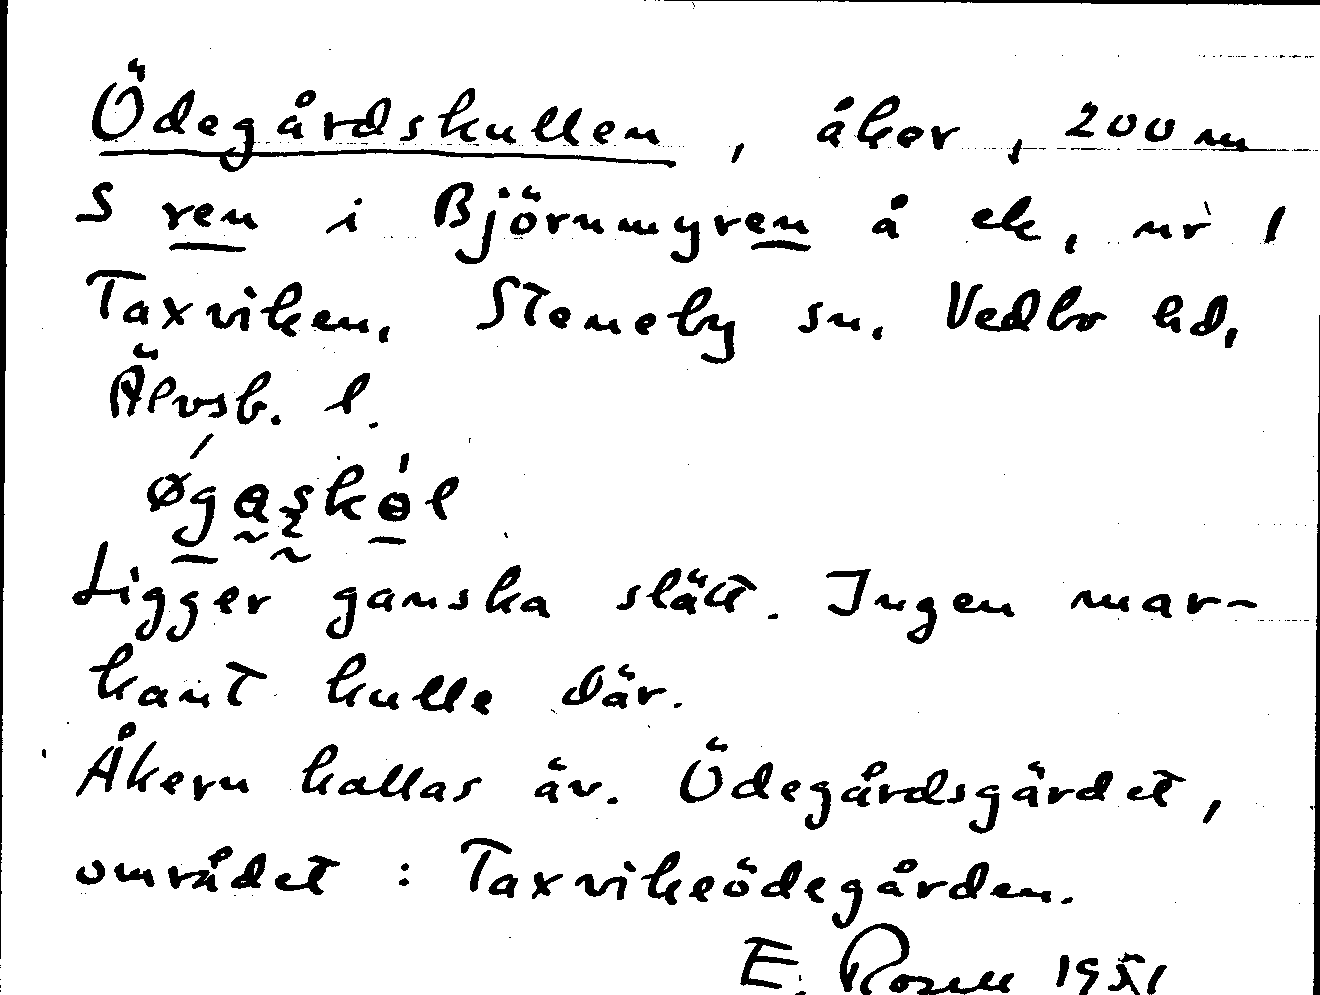 Ödegårdskullen, åker, 200 m
S ren i Björnmyren å ek, nr 1
Taxviken, Steneby sn. Vedbo hd,
Älvsb. l.
Ligger ganska slätt. Ingen mar-
kant kulle där.
Åkern kallas äv. Ödegårdsgärdet,
området : Taxvikeödegården.
E. Rosell 1951